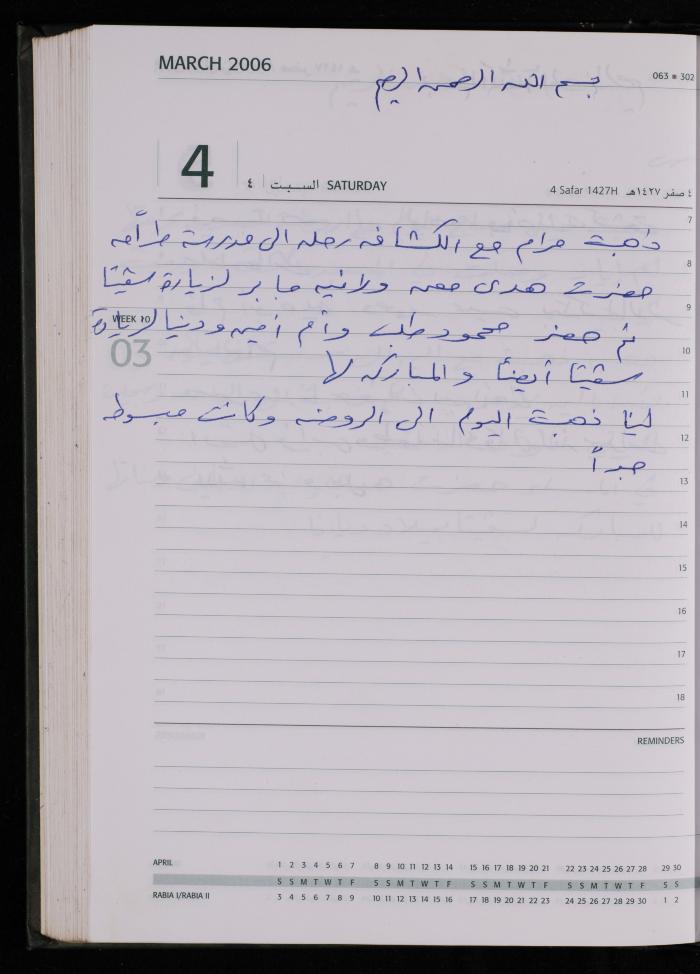 MARCH 2006
بسم الله الرحمن الرحيم
063 302
4
٤ السبت SATURDAY
4 Safar 1427H ٤ صفر ١٤٢٧هـ
7
ذهبت مرام مع الكشافه رحله الى مدرسة
8
حضرت هدى ورانيه جابر لزيارة
9
WEEK 10
ثم حضر محمود وأم أمين ودنيا لزيارة
03
10
أيضاً والمباركه لها
11
لينا ذهبت اليوم الى الروضه وكانت مبسوطه
12
جداً
13
14
15
16
17
18
REMINDERS
APRIL 1 2 3 4 5 6 7 8 9 10 11 12 13 14 15 16 17 18 19 20 21 22 23 24 25 26 27 28 29 30
S S M T W T F S S M T W T F S S M T W T F S S M T W T F S S
RABIA I/RABIA II 3 4 5 6 7 8 9 10 11 12 13 14 15 16 17 18 19 20 21 22 23 24 25 26 27 28 29 30 1 2